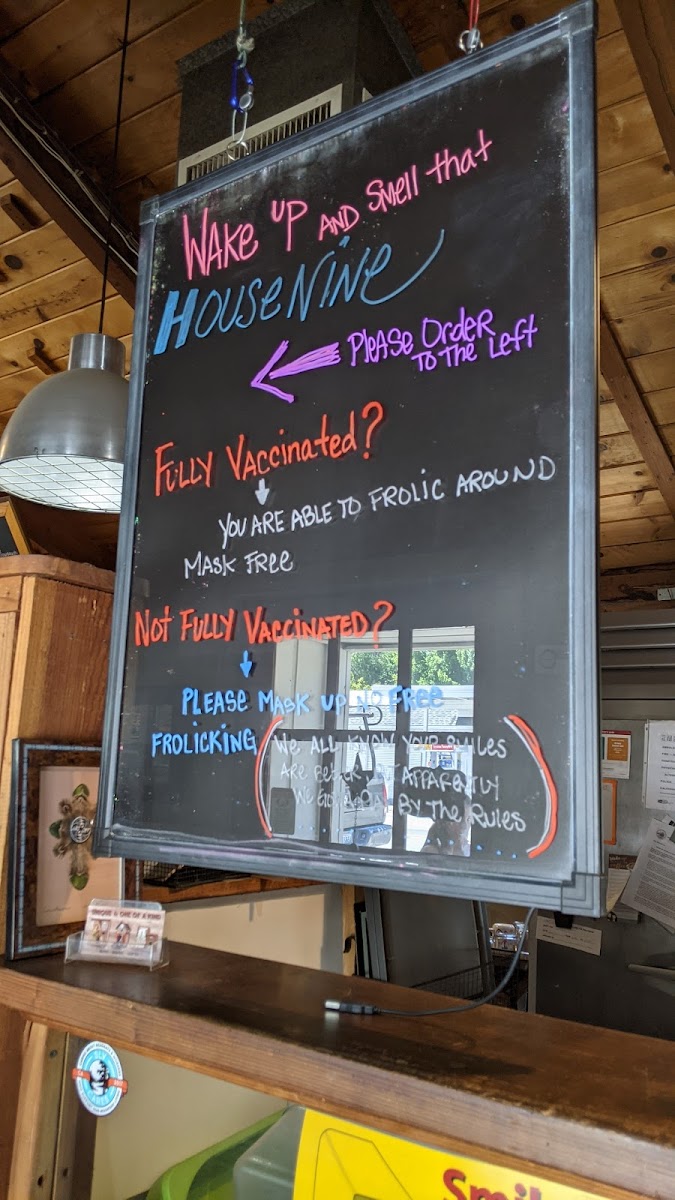 WAKE UP AND SMELL that
HOUSE NINE
PLEASE ORDER
TO THE LEFT
FULLY VACCINATED?
YOU ARE ABLE TO FROLIC AROUND
MASK FREE
NOT FULLY VACCINATED?
PLEASE MASK UP NO FREE
FROLICKING
(WE ALL KNOW YOUR SMILES
ARE BETTER APPARENTLY
WE BY THE RULES)
UNIQUE & ONE OF A KIND
Smil